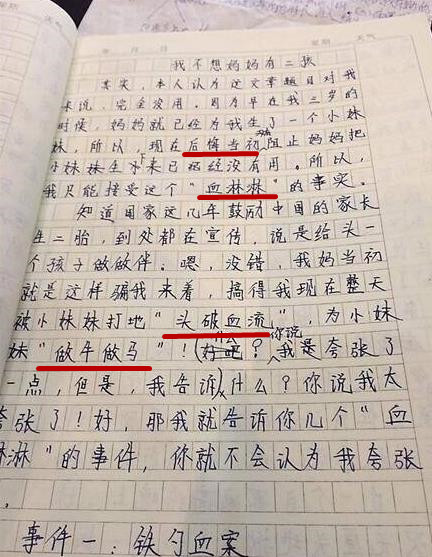 年 月 日 星期 天气
我不想妈妈有二孩
其实，本人认为这文章题目对我
来说，完全没用。因为早在我三岁的
时候，妈妈就已经为我生了一个小妹
妹，所以，现在后悔当初没有阻止妈妈把
小妹妹生下来已经没有用。所以，
我只能接受这个“血林林”的事实。
知道国家这几年鼓励中国的家长
生二胎，到处都在宣传，说是给头一
个孩子做做伴。嗯，没错，我妈当初
就是这样骗我来着，搞得我现在整天
被小妹妹打地“头破血流”，为小妹
妹“做牛做马”！什么？你说我是夸张了
一点，但是，我告诉什么？你说我太
夸张了！好，那我就告诉你几个“血
淋淋”的事件，你就不会认为我夸张
。
事件一：铁勺血案